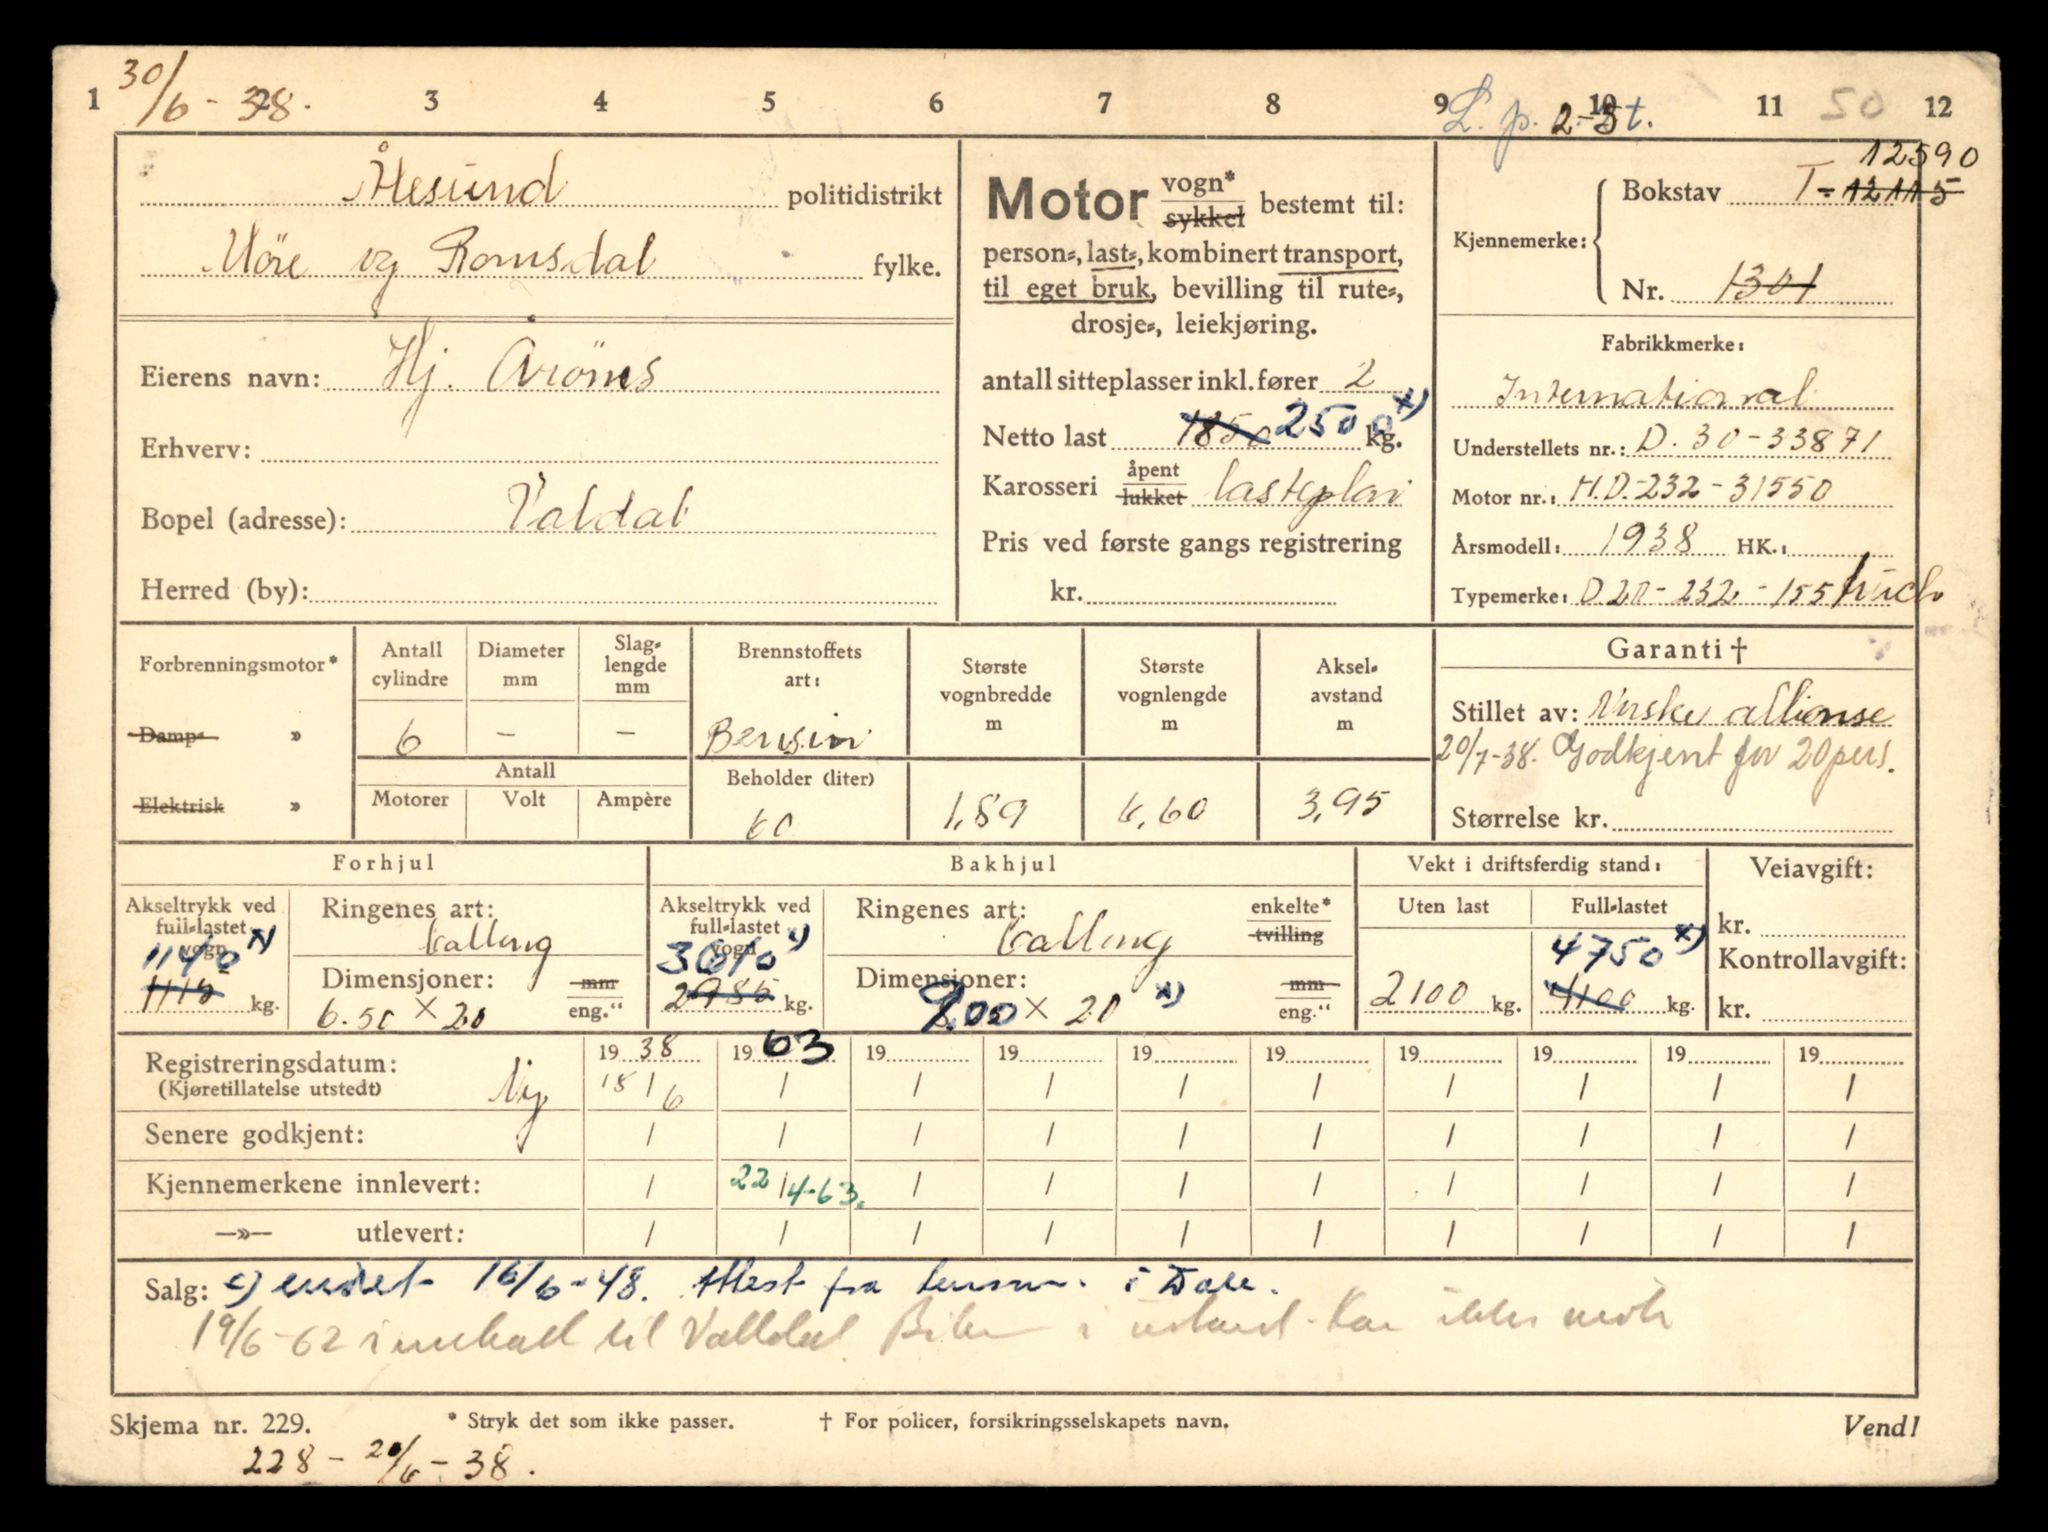 30/6-38.
1 2 3 4 5 6 7 8 9 10 11 12
L. p. 2-3t. 50
Ålesund politidistrikt
Möre og Romsdal fylke.
Eierens navn: Hj.
Erhverv:
Bopel (adresse): Valdal
Herred (by):
Motor vogn* sykkel bestemt til:
person-, last-, kombinert transport,
til eget bruk, bevilling til rute-,
drosje-, leiekjøring.
antall sitteplasser inkl. fører 2
Netto last 1850 2500 x) kg.
Karosseri åpent lukket lasteplan
Pris ved første gangs registrering
kr.
12590
Bokstav T-12115
Kjennemerke:
Nr. 1301
Fabrikkmerke:
International
Understellets nr.: D. 30-33871
Motor nr.: H.D.-232-31550
Årsmodell: 1938 HK.:
Typemerke: D 20-232-155 truck
Forbrenningsmotor*
Damp- »
Elektrisk »
Antall cylindre 6
Diameter mm -
Slag-lengde mm -
Antall
Motorer Volt Ampère
Brennstoffets art: Bensin
Beholder (liter) 60
Største vognbredde m 1,89
Største vognlengde m 6,60
Aksel-avstand m 3,95
Garanti †
Stillet av: Norske Allianse
20/7-38. Godkjent for 20 pers.
Størrelse kr.
Forhjul
Akseltrykk ved full-lastet vogn
1140 x)
1115 kg.
Ringenes art: ballong
Dimensjoner: 6.50 × 20 mm eng."
Bakhjul
Akseltrykk ved full-lastet vogn
3610 x)
2985 kg.
Ringenes art: ballong
enkelte* tvilling
Dimensjoner: 7.00 × 20 x) mm eng."
Vekt i driftsferdig stand:
Uten last Full-lastet
2100 kg. 4750 x) 4100 kg.
Veiavgift:
kr.
Kontrollavgift:
kr.
Registreringsdatum: 19 38 19 63 19 19 19 19 19 19 19 19
(Kjøretillatelse utstedt) Ny 18/6 / / / / / / / / /
Senere godkjent: / / / / / / / / / /
Kjennemerkene innlevert: / 22/4-63. / / / / / / / /
—»— utlevert: / / / / / / / / / /
Salg: x) endret 16/6-48. Attest fra lensm. i Dale.
19/6-62 innkalt til Valldal. Bilen i ustand. Kan ikke møte
Skjema nr. 229. * Stryk det som ikke passer. † For policer, forsikringsselskapets navn. Vend!
228 - 20/6-38.